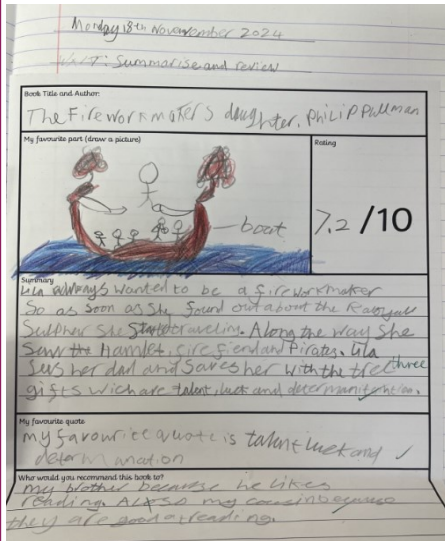 Monday 18th Novevember 2024
WALT: Summarise and review
Book Title and Author:
The Fireworkmaker's daughter, Philip Pullman
My favourite part (draw a picture)
Rating
boat
7.2 /10
Summary
Lila always wanted to be a fireworkmaker
So as soon as she found out about the
Sulpher she traveling. Along the way she
the Hamlet, fire fiend and Pirates. Lila
her dad and Saves her with the three
gifts wich are talent, luck and
My favourite quote
my favourite quote is talent luck and
determanation
Who would you recommend this book to?
my brother because he likes
reading. Also my cousin because
they are good at reading.